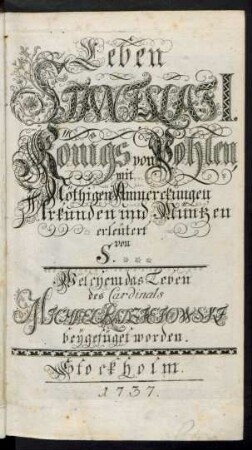 Leben
STANISLAS I.
Königs von Pohlen
mit
Nöthigen Anmerckungen
Urkunden und Müntzen
erleutert
von
S. * * *
Welchem das Leben
des Cardinals
MICHAEL RADZIEIOWSKI
beygefüget worden.
Stockholm.
1737.